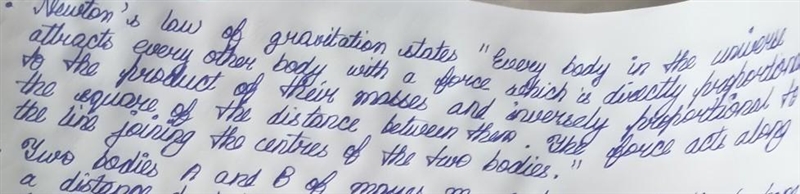 • Newton's law of gravitation states "Every body in the universe
attracts every other body with a force which is directly proportional
to the product of their masses and inversely proportional to
the square of the distance between them. The force acts along
the line joining the centres of the two bodies."
Two bodies A and B of masses m
a distance